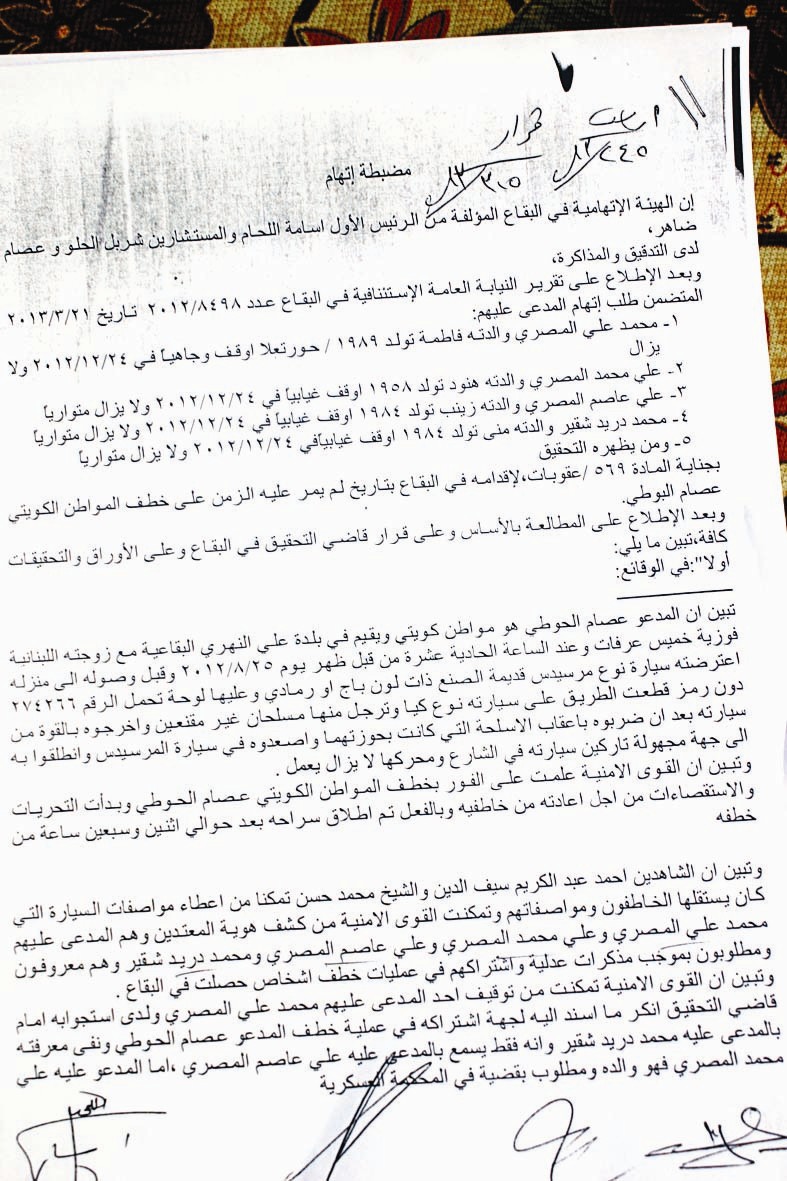 اساس قرار
٢٤٥/١٣ ٣٠٥/١٣
مضبطة إتهام
إن الهيئة الإتهامية في البقاع المؤلفة من الرئيس الأول اسامة اللحام والمستشارين شربل الحلو و عصام
ضاهر،
لدى التدقيق والمذاكرة،
وبعد الإطلاع على تقرير النيابة العامة الإستئنافية في البقاع عدد ٢٠١٢/٨٤٩٨ تاريخ ٢٠١٣/٣/٢١
المتضمن طلب إتهام المدعى عليهم:
١- محمد علي المصري والدته فاطمة تولد ١٩٨٩ / حورتعلا اوقف وجاهياً في ٢٠١٢/١٢/٢٤ ولا
يزال
٢- علي محمد المصري والدته هنود تولد ١٩٥٨ اوقف غيابياً في ٢٠١٢/١٢/٢٤ ولا يزال متوارياً
٣- علي عاصم المصري والدته زينب تولد ١٩٨٤ اوقف غيابياً في ٢٠١٢/١٢/٢٤ ولا يزال متوارياً
٤- محمد دريد شقير والدته منى تولد ١٩٨٤ اوقف غيابياًفي ٢٠١٢/١٢/٢٤ ولا يزال متوارياً
٥- ومن يظهره التحقيق
بجناية المادة ٥٦٩ /عقوبات،لإقدامه في البقاع بتاريخ لم يمر عليه الزمن على خطف المواطن الكويتي
عصام البوطي.
وبعد الإطلاع على المطالعة بالأساس وعلى قرار قاضي التحقيق في البقاع وعلى الأوراق والتحقيقات
كافة،تبين ما يلي:
أولا":في الوقائع:
تبين ان المدعو عصام الحوطي هو مواطن كويتي ويقيم في بلدة علي النهري البقاعية مع زوجته اللبنانية
فوزية خميس عرفات وعند الساعة الحادية عشرة من قبل ظهر يوم ٢٠١٢/٨/٢٥ وقبل وصوله الى منزله
اعترضته سيارة نوع مرسيدس قديمة الصنع ذات لون باج او رمادي وعليها لوحة تحمل الرقم ٢٧٤٢٦٦
دون رمز قطعت الطريق على سيارته نوع كيا وترجل منها مسلحان غير مقنعين واخرجوه بالقوة من
سيارته بعد ان ضربوه باعقاب الاسلحة التي كانت بحوزتهما واصعدوه في سيارة المرسيدس وانطلقوا به
الى جهة مجهولة تاركين سيارته في الشارع ومحركها لا يزال يعمل .
وتبين ان القوى الامنية علمت على الفور بخطف المواطن الكويتي عصام الحوطي وبدأت التحريات
والاستقصاءات من اجل اعادته من خاطفيه وبالفعل تم اطلاق سراحه بعد حوالي اثنين وسبعين ساعة من
خطفه
وتبين ان الشاهدين احمد عبد الكريم سيف الدين والشيخ محمد حسن تمكنا من اعطاء مواصفات السيارة التي
كان يستقلها الخاطفون ومواصفاتهم وتمكنت القوى الامنية من كشف هوية المعتدين وهم المدعى عليهم
محمد علي المصري وعلي محمد المصري وعلي عاصم المصري ومحمد دريد شقير وهم معروفون
ومطلوبون بموجب مذكرات عدلية واشتراكهم في عمليات خطف اشخاص حصلت في البقاع .
وتبين ان القوى الامنية تمكنت من توقيف احد المدعى عليهم محمد علي المصري ولدى استجوابه امام
قاضي التحقيق انكر ما اسند اليه لجهة اشتراكه في عملية خطف المدعو عصام الحوطي ونفى معرفته
بالمدعى عليه محمد دريد شقير وانه فقط يسمع بالمدعى عليه علي عاصم المصري ،اما المدعو عليه علي
محمد المصري فهو والده ومطلوب بقضية في المحكمة العسكرية